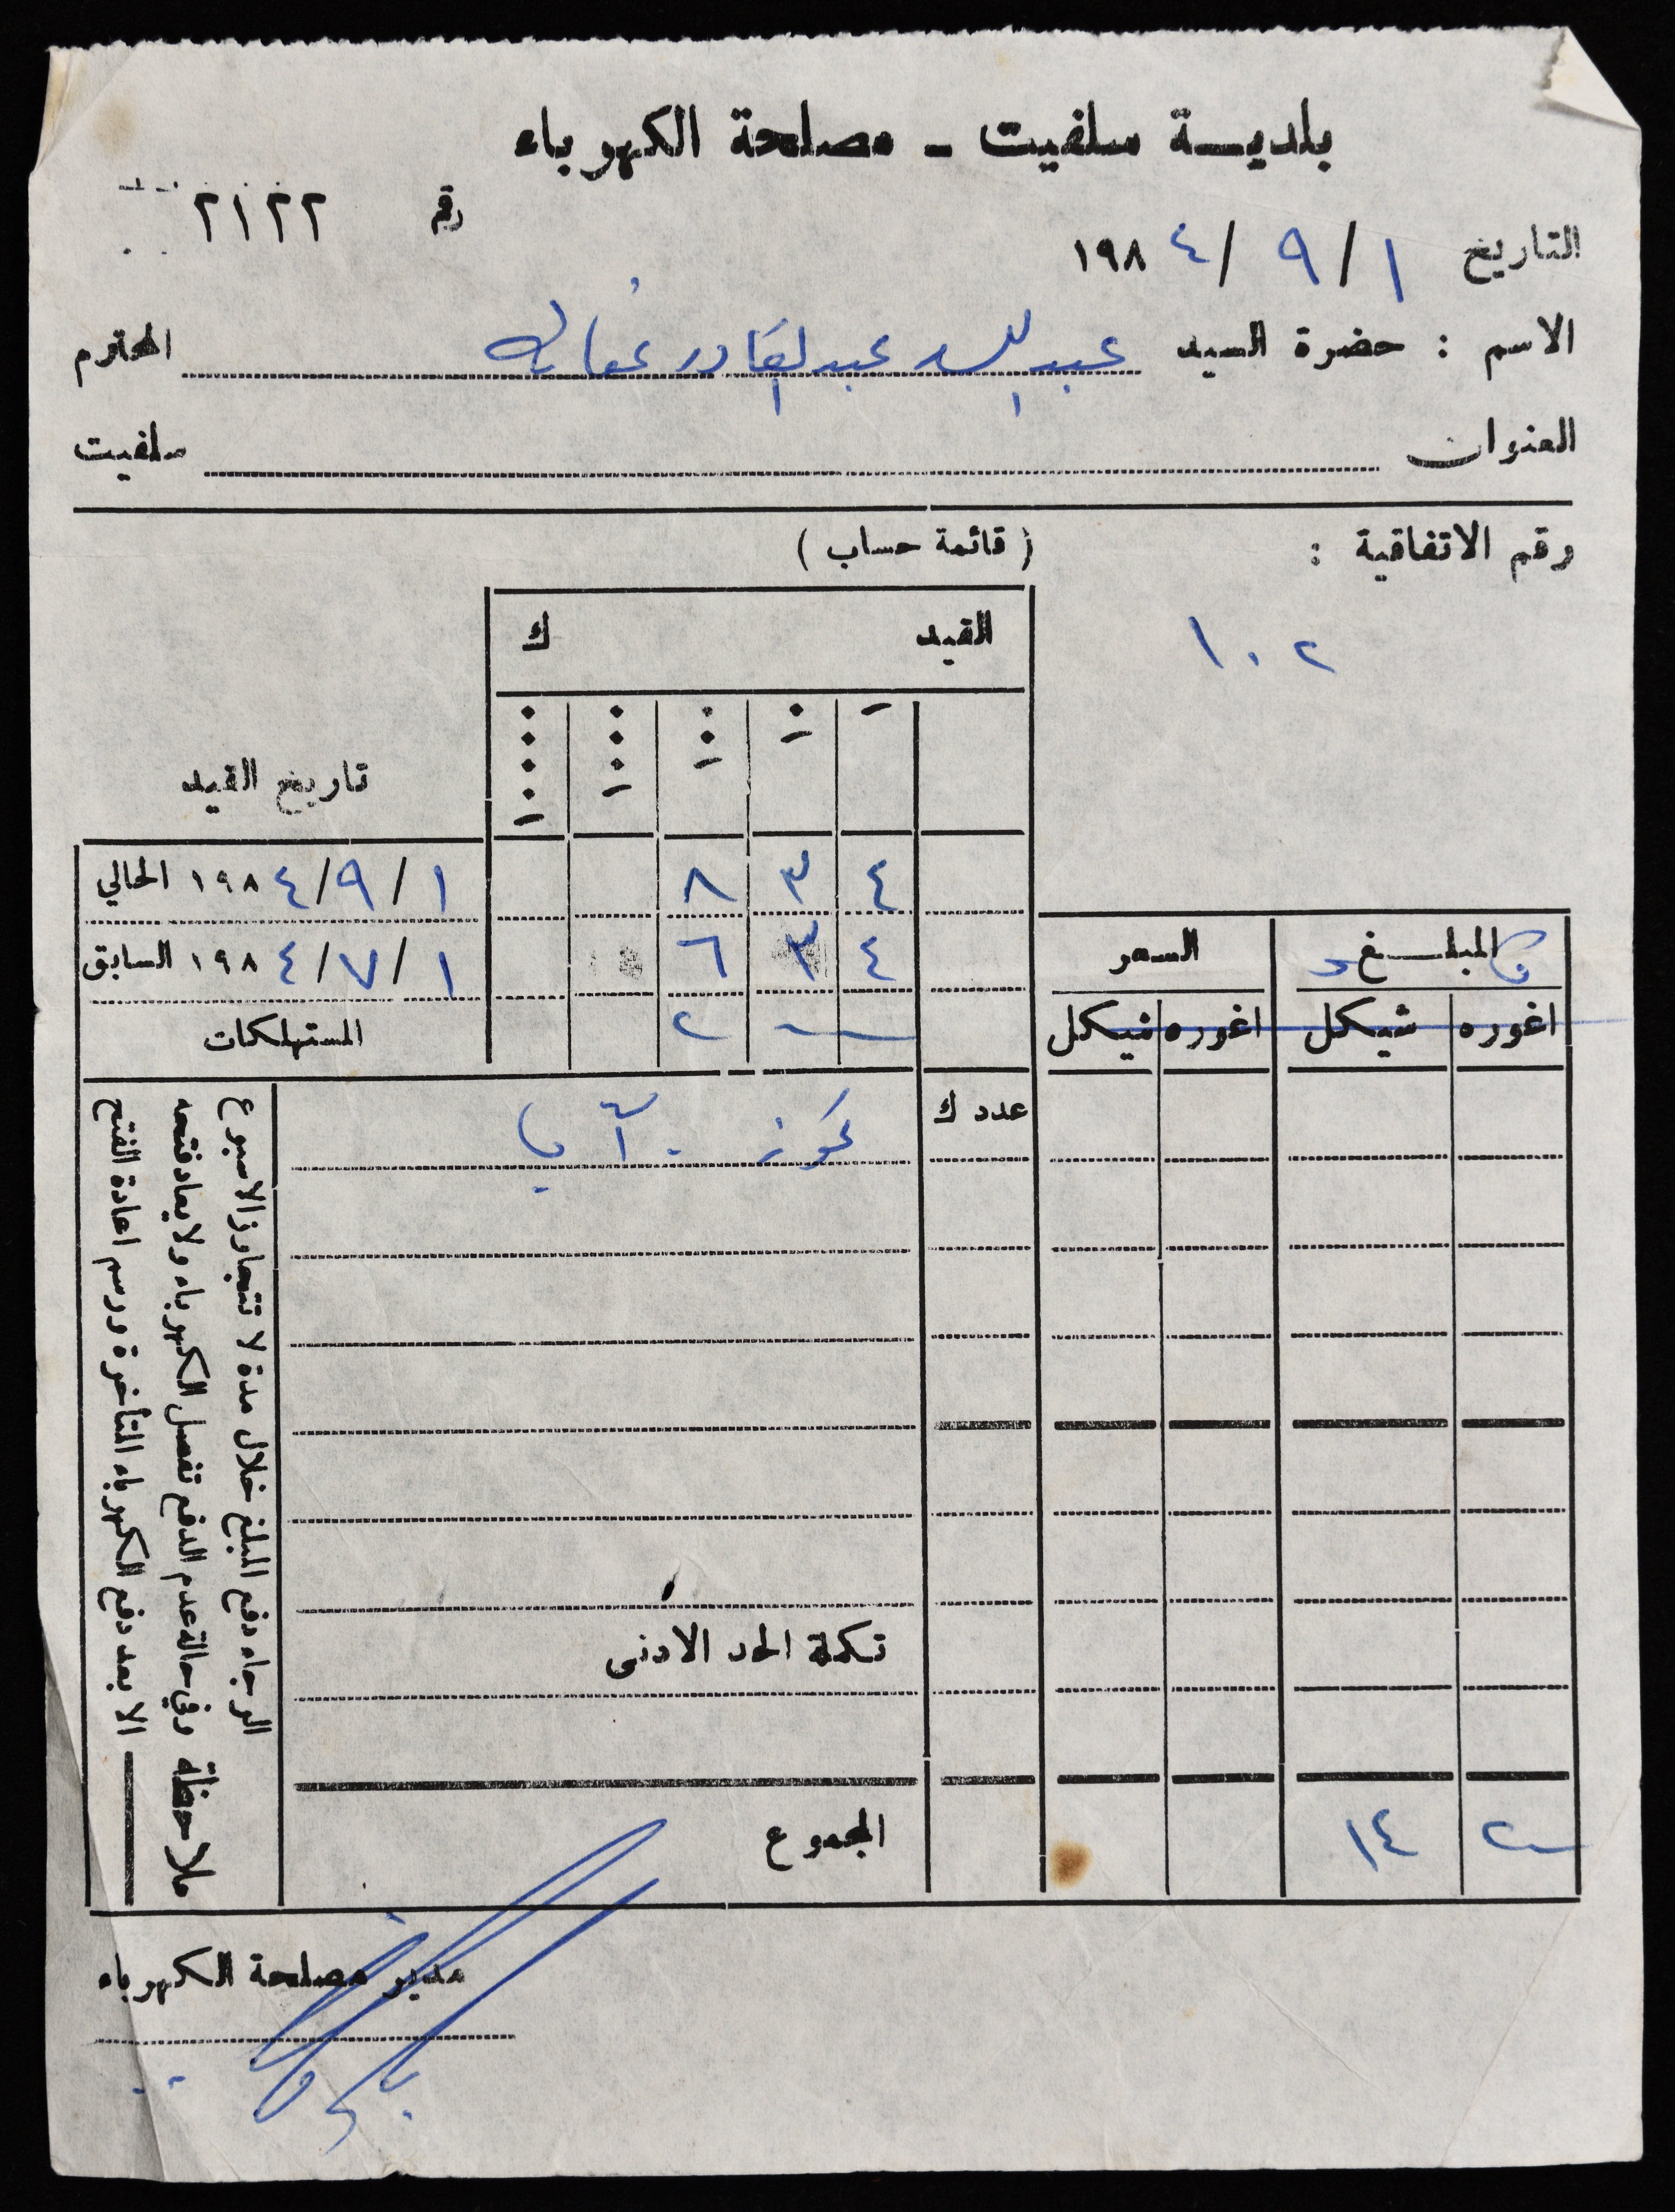 بلديــة سلفيت - مصلحة الكهرباء
رقم ٢١٢٢
التاريخ ١ / ٩ / ١٩٨٤
الاسم : حضرة السيد عبد الله عبد القادر عفانه المحترم
العنوان سلفيت
رقم الاتفاقية :
١٠٢
( قائمة حساب )
القيد ك
تاريخ القيد
٤ ٣ ٨ ١ / ٩ / ١٩٨٤ الحالي
٤ ٣ ٦ ١ / ٧ / ١٩٨٤ السابق
٢ المستهلكات
المبلــغ السعر
اغوره شيكل اغوره شيكل
عدد ك
تموز آب
تكملة الحد الادنى
المجموع
١٤
ملاحظة
الرجاء دفع المبلغ خلال مدة لا تتجاوز الاسبوع
وفي حالة عدم الدفع تفصل الكهرباء ولا يعاد فتحه
الا بعد دفع الكهرباء المتأخرة ورسم اعادة الفتح
مدير مصلحة الكهرباء